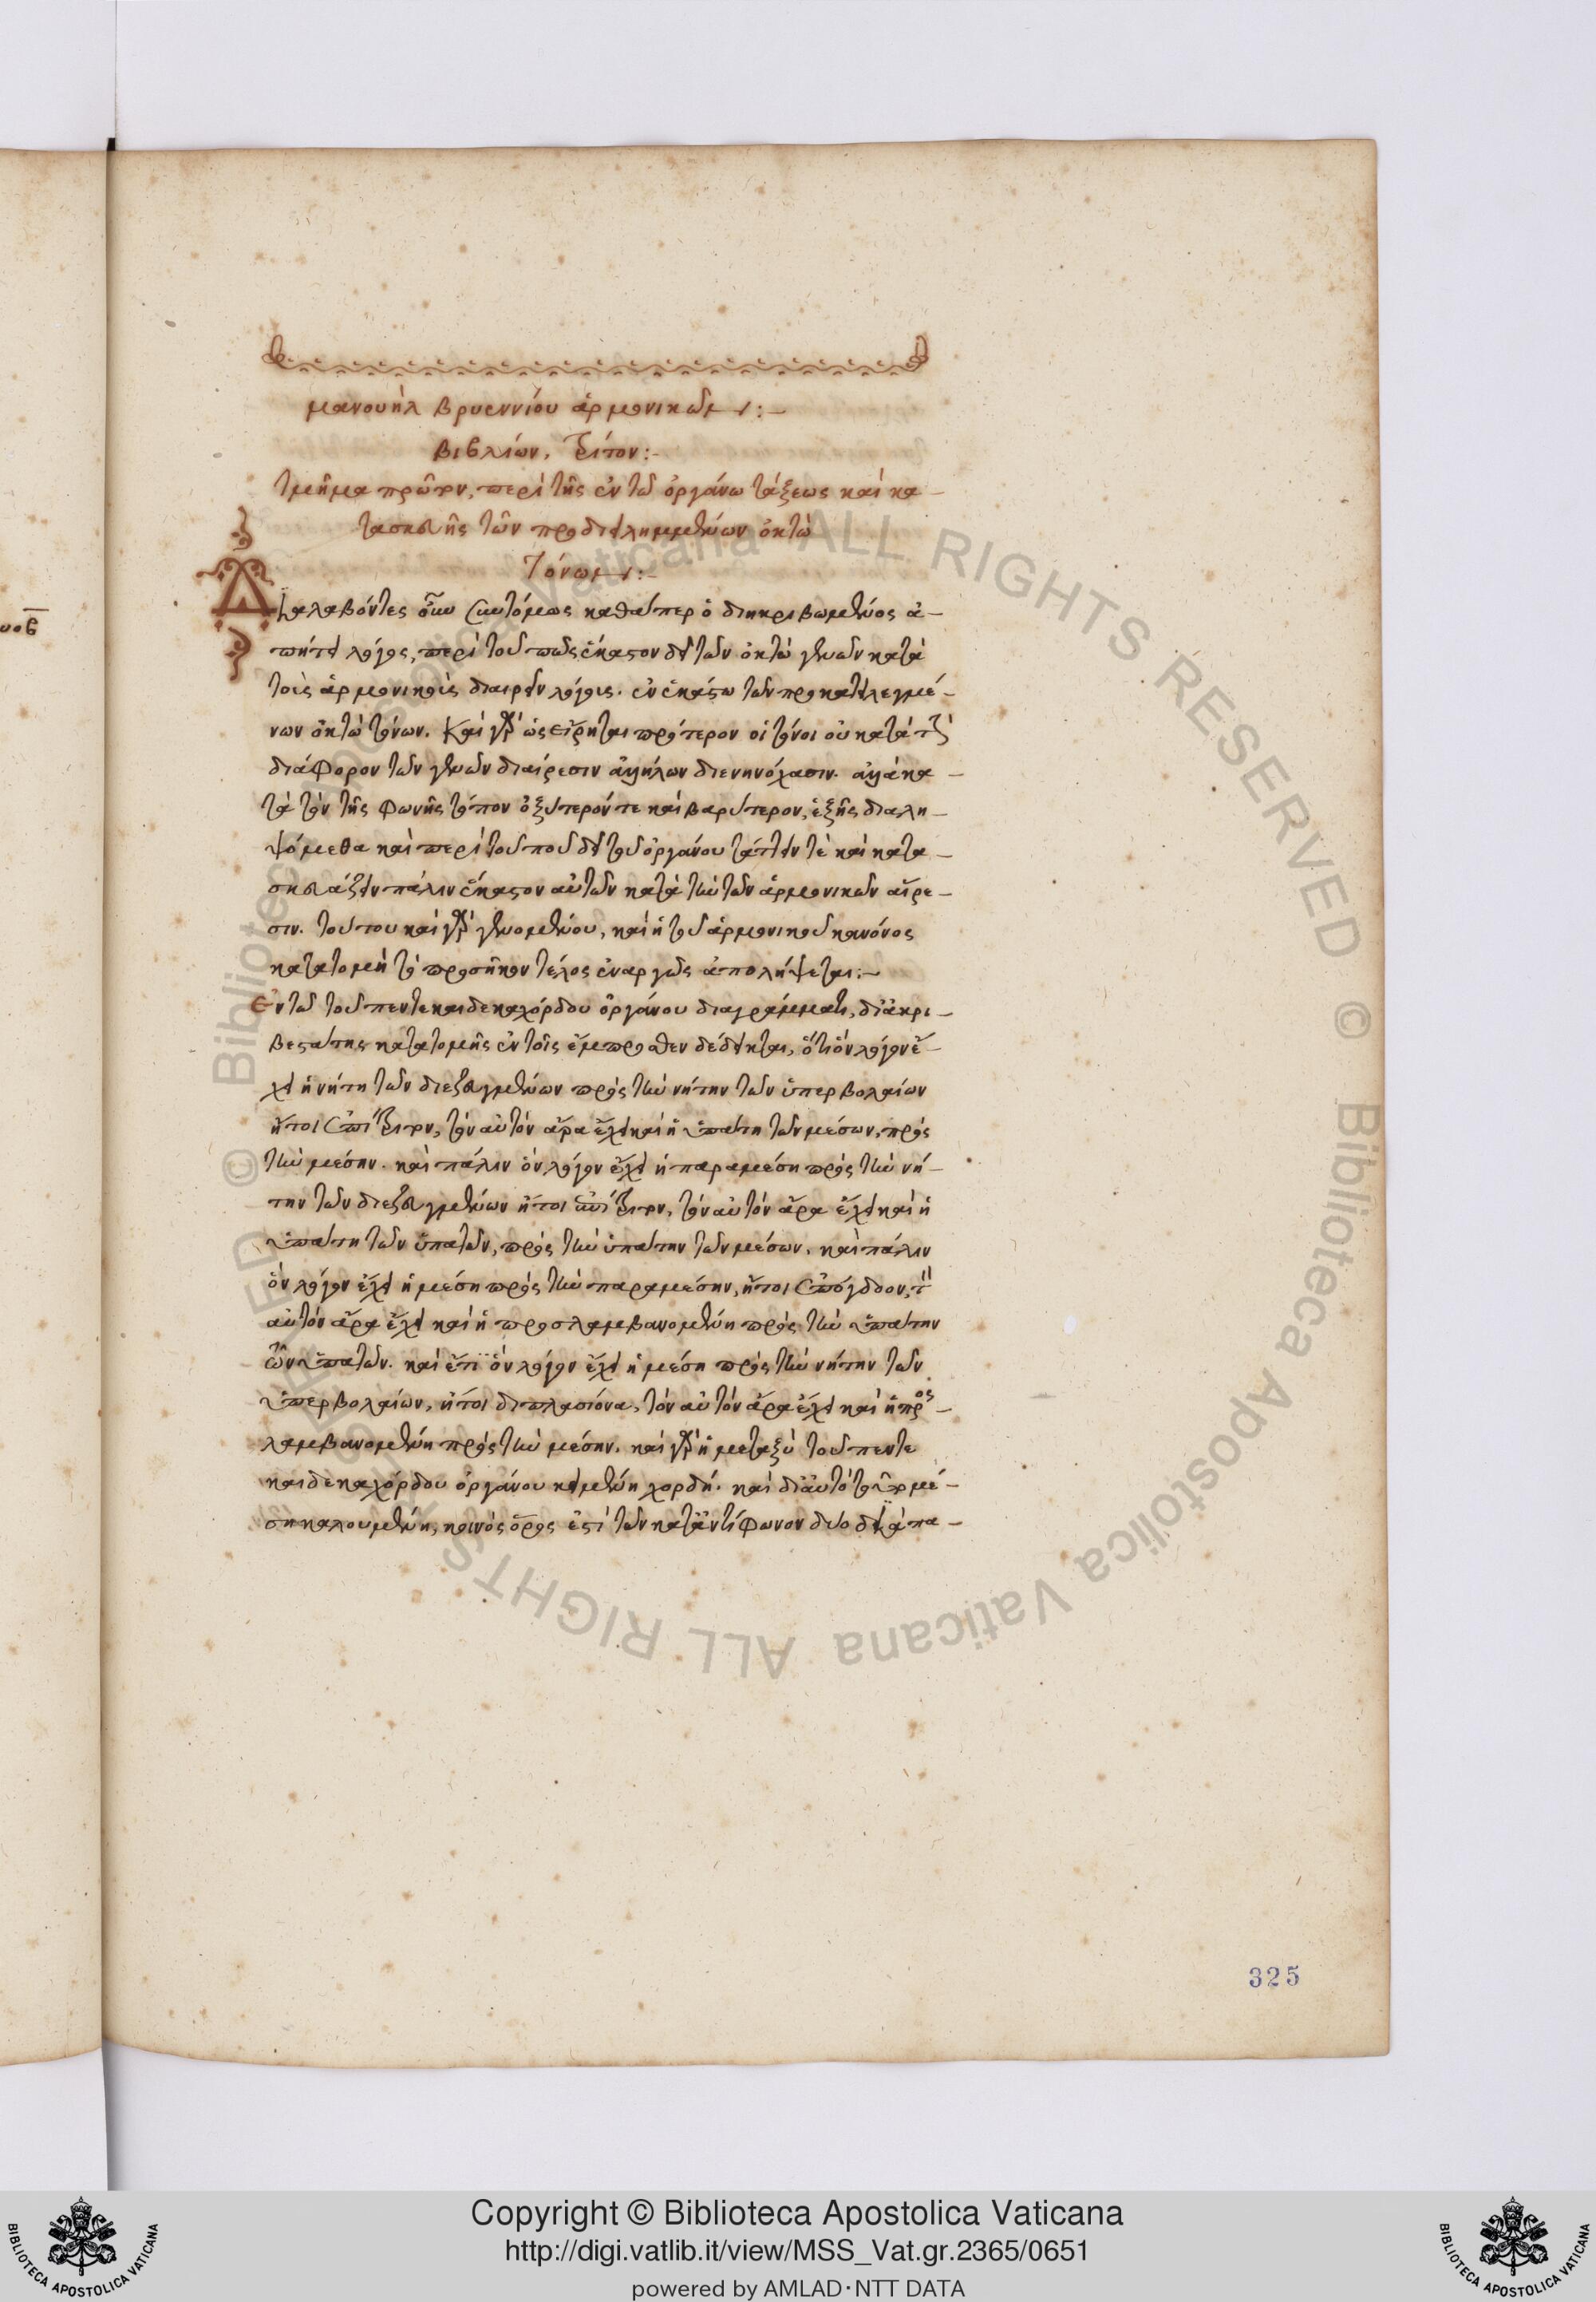 μανουὴλ βρυεννίου ἁρμονικῶν:–
βιβλίων, τρίτον:–
τμῆμα πρῶτον, περὶ τῆς ἐν τῶ ὀργάνω τάξεως καὶ κα–
τασκευῆς τῶν προδιειλημμένων ὀκτὼ
τόνων:–
Διαλαβόντες οὖν συντόμως καθάπερ ὁ διηκριβωμένος ἀ–
πήτει λόγος, περὶ τοῦ πῶς ἕκαστον δεῖ τῶν ὀκτὼ γενῶν κατὰ
τοὺς ἁρμονικοὺς διαιρεῖν λόγους. ἐν ἑκάστω τῶν προκατειλεγμέ–
νων ὀκτὼ τόνων. καὶ γὰρ ὡς εἴρηται πρότερον οἱ τόνοι οὐ κατὰ τὴν
διάφορον τῶν γενῶν διαίρεσιν ἀλλήλων διενηνόχασιν. ἀλλὰ κα–
τὰ τὸν τῆς φωνῆς τόπον ὀξύτερόν τε καὶ βαρύτερον, ἑξῆς διαλη–
ψόμεθα καὶ περὶ τοῦ ποῦ δεῖ τοῦ ὀργάνου τάττειν τὲ καὶ κατα–
σκευάζειν πάλιν ἕκαστον αὐτῶν κατὰ τὴν τῶν ἁρμονικῶν αἵρε–
σιν. τούτου καὶ γὰρ γενομένου, καὶ ἡ τοῦ ἁρμονικοῦ κανόνος
κατατομὴ τὸ προσῆκον τέλος ἐναργῶς ἀπολήψεται:–
Ἐν τῶ τοῦ πεντεκαιδεκαχόρδου ὀργάνου διαγράμματι, δι' ἀκρι–
βεστάτης κατατομῆς ἐν τοῖς ἔμπροσθεν δέδεικται, ὅτι ὃν λόγον ἔ–
χει ἡ νήτη τῶν διεζευγμένων πρὸς τὴν νήτην τῶν ὑπερβολαίων
ἤτοι ἐπίτριτον, τὸν αὐτὸν ἄρα ἔχει καὶ ἡ ὑπάτη τῶν μέσων, πρὸς
τὴν μέσην. καὶ πάλιν ὃν λόγον ἔχει ἡ παραμέση πρὸς τὴν νή–
την τῶν διεζευγμένων ἤτοι ἐπίτριτον, τὸν αὐτὸν ἄρα ἔχει καὶ ἡ
ὑπάτη τῶν ὑπατῶν, πρὸς τὴν ὑπάτην τῶν μέσων. καὶ πάλιν
ὃν λόγον ἔχει ἡ μέση πρὸς τὴν παραμέσην, ἤτοι ἐπόγδοον, τὸν
αὐτὸν ἄρα ἔχει καὶ ἡ προσλαμβανομένη πρὸς τὴν ὑπάτην
τῶν ὑπατῶν. καὶ ἔτι ὃν λόγον ἔχει ἡ μέση πρὸς τὴν νήτην τῶν
ὑπερβολαίων, ἤτοι διπλασίονα, τὸν αὐτὸν ἄρα ἔχει καὶ ἡ προσ–
λαμβανομένη πρὸς τὴν μέσην. καὶ γὰρ ἡ μεταξὺ τοῦ πεντε
καιδεκαχόρδου ὀργάνου κειμένη χορδή. καὶ δι' αὐτὸ τοῦτο μέ–
ση καλουμένη, κοινὸς ὅρος ἐστὶ τῶν κατ' ἀντίφωνον δύο διὰ πα–
325
© Biblioteca Apostolica Vaticana ALL RIGHTS RESERVED © Biblioteca Apostolica Vaticana ALL RIGHTS RESERVED
Copyright © Biblioteca Apostolica Vaticana
http://digi.vatlib.it/view/MSS_Vat.gr.2365/0651
powered by AMLAD·NTT DATA
BIBLIOTECA APOSTOLICA VATICANA
BIBLIOTECA APOSTOLICA VATICANA